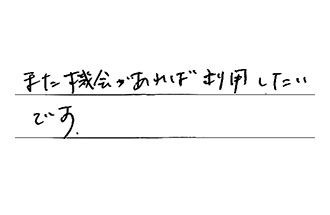 また機会があれば利用したい
です.